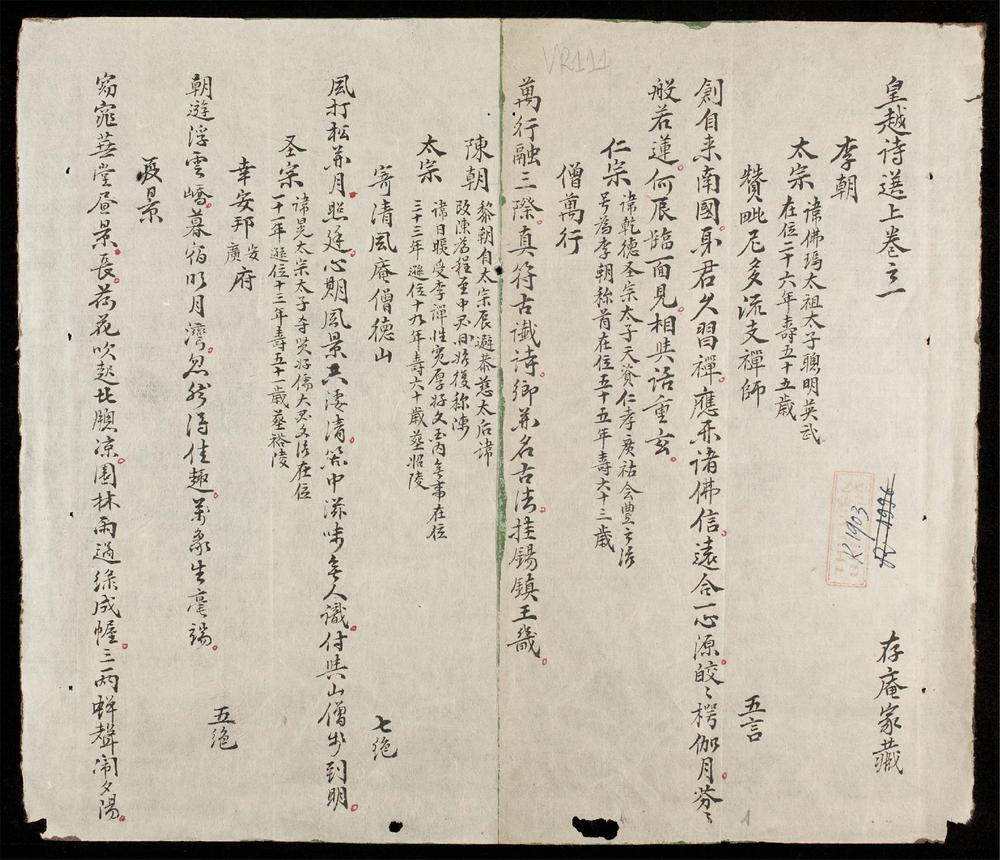 皇越诗選上卷之一 存庵家藏
李朝
太宗 諱佛瑪太祖太子聰明英武
在位二十六年壽五十五歲
贊毗尼多流支禪師 五言
創自来南國。聞君久習禪。應開諸佛信。遠合一心源。皎〻楞伽月。芬〻
般若蓮。何辰臨面見。相與話重玄。
仁宗 諱乾德圣宗太子天資仁孝廣祐会豊之治
号為李朝称首在位五十五年壽六十三歲
僧萬行
萬行融三際。真符古讖詩。鄉關名古法。拄錫鎮王畿。
陳朝 黎朝自太宗辰避恭慈太后諱
改陳為程至中 始復称陳
太宗 諱日煚受李禪性寬厚好文 内無事在位
三十三年遜位十九年壽六十歲葬昭陵
寄清風庵僧德山 七绝
風打松關月照庭。心期風景共凄清。箇中滋味無人識。付與山僧步到明。
圣宗 諱晃太宗太子 賢好儒 在位
二十一年遜位十三年壽五十一歲葬裕陵
幸安邦府 安廣 五绝
朝遊浮雲嶠。暮宿明月灣。忽然得佳趣。萬象生毫端。
夏景
窈窕華堂昼景長。荷花吹起北牕凉。園林雨過綠成幄。三两蟬聲闹夕陽。
VR111
R.1903